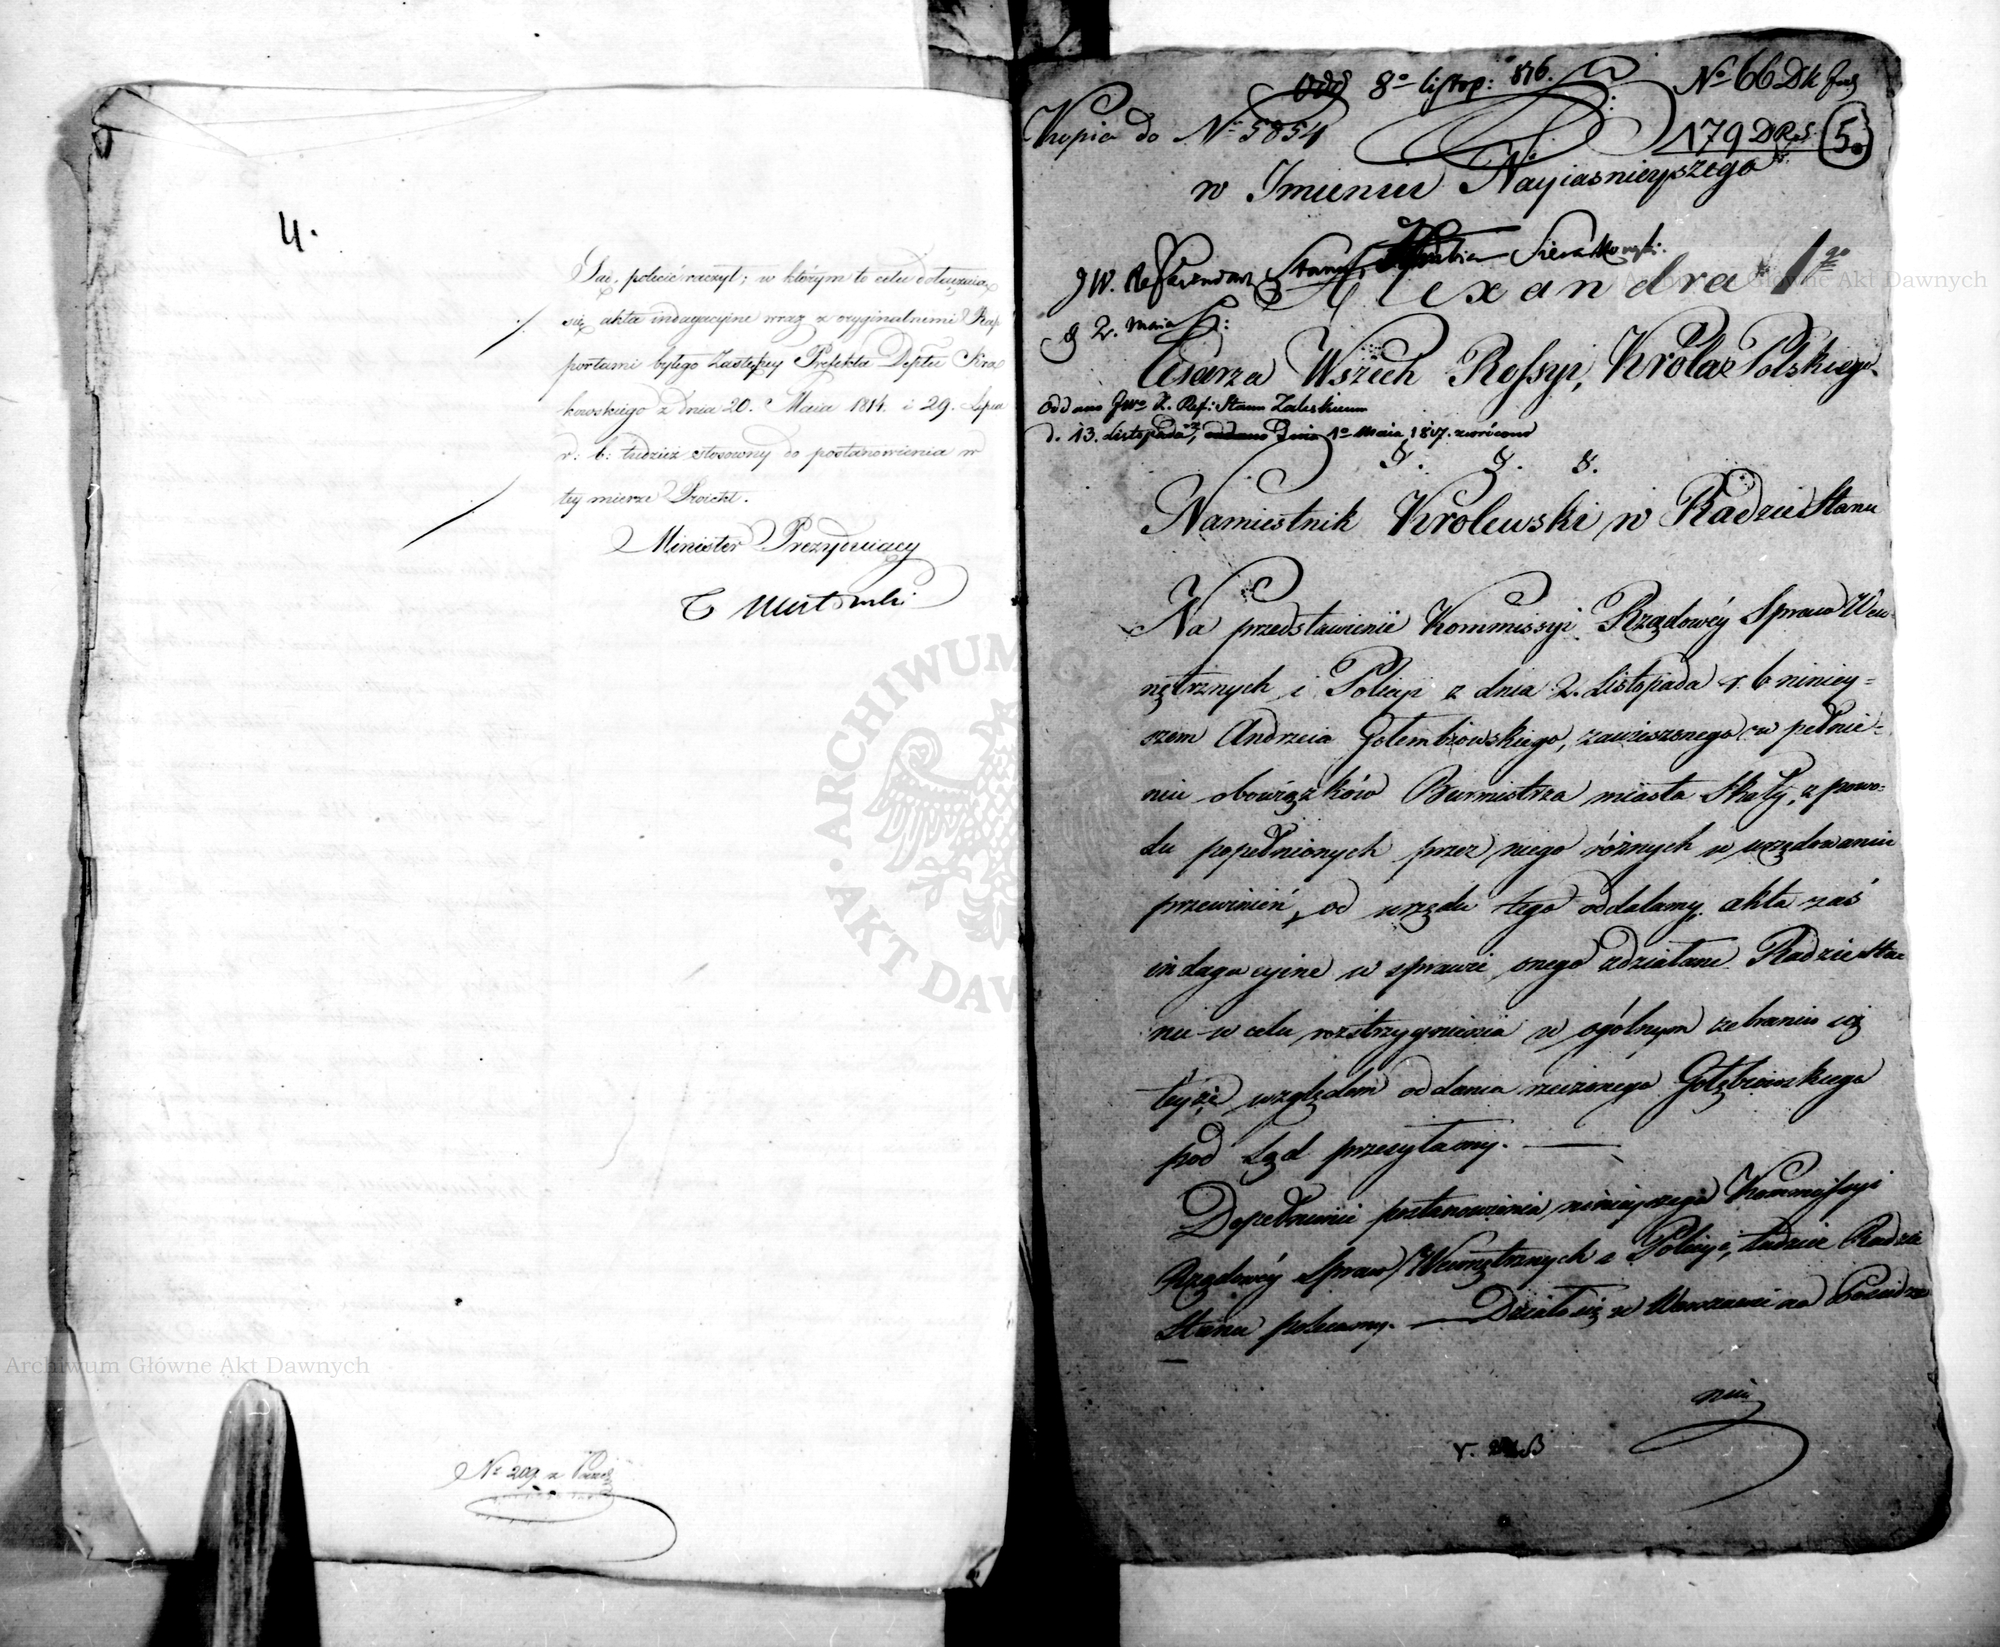 4.
Stać, polecić raczył; w którym to celu dołączaią
się akta indagacyjne wraz z oryginalnemi Rap
portami byłego Zastępcy Prefekta Deptu Kra
kowskiego z dnia 20. Maia 1814. i 29. Lipca
r: b: tudzież stosowny do postanowienia w
tey mierze Proiekt.
Minister Prezyduiący
T Mostowski
Nr 209 z
Odd 8o listop: 816.
No 66 Dk
Kopia do No 5854
179 DRS
5.
w Imieniu Nayiasnieyszego
JW. Referendarz Stanu Hrabia Sierakowski.
Alexandra 1go
d 2. maia
Cesarza Wszech Rossyi, Króla Polskiego
Oddano JWo Z. Ref: Stanu Zaleskiemu
d. 13. Listopada, oddano Dnia 1o Maia 1817. zwrócono
Namiestnik Krolewski w Radzie Stanu
Na przedstawienie Kommissyi Rządowéy Spraw Wew-
nętrznych i Policyi z dnia 2. Listopada r. b niniey=
szem Andrzeia Gołembiowskiego, zawieszonego w pełnie=
niu obowiązków Burmistrza miasta Skały, z powo-
du popełnionych przez niego różnych w urzędowaniu
przewinień, od urzędu tego oddalamy. akta zaś
indagacyine w sprawie onego zdziałane Radzie Sta
nu w celu rozstrzygnienia w ogólnym zebraniu się
teyże względem oddania rzeczonego Gołębiowskiego
pod Sąd przesyłamy. —
Dopełnienie postanowienia ninieyszego Kommissyi
Rządowéy Spraw Wewnętrznych i Policyi, tudzież Radzie
Stanu polecamy. — Działo się w Warszawie na Posiedze
niu
ARCHIWUM GŁÓWNE AKT DAWNYCH
Archiwum Główne Akt Dawnych
Archiwum Główne Akt Dawnych